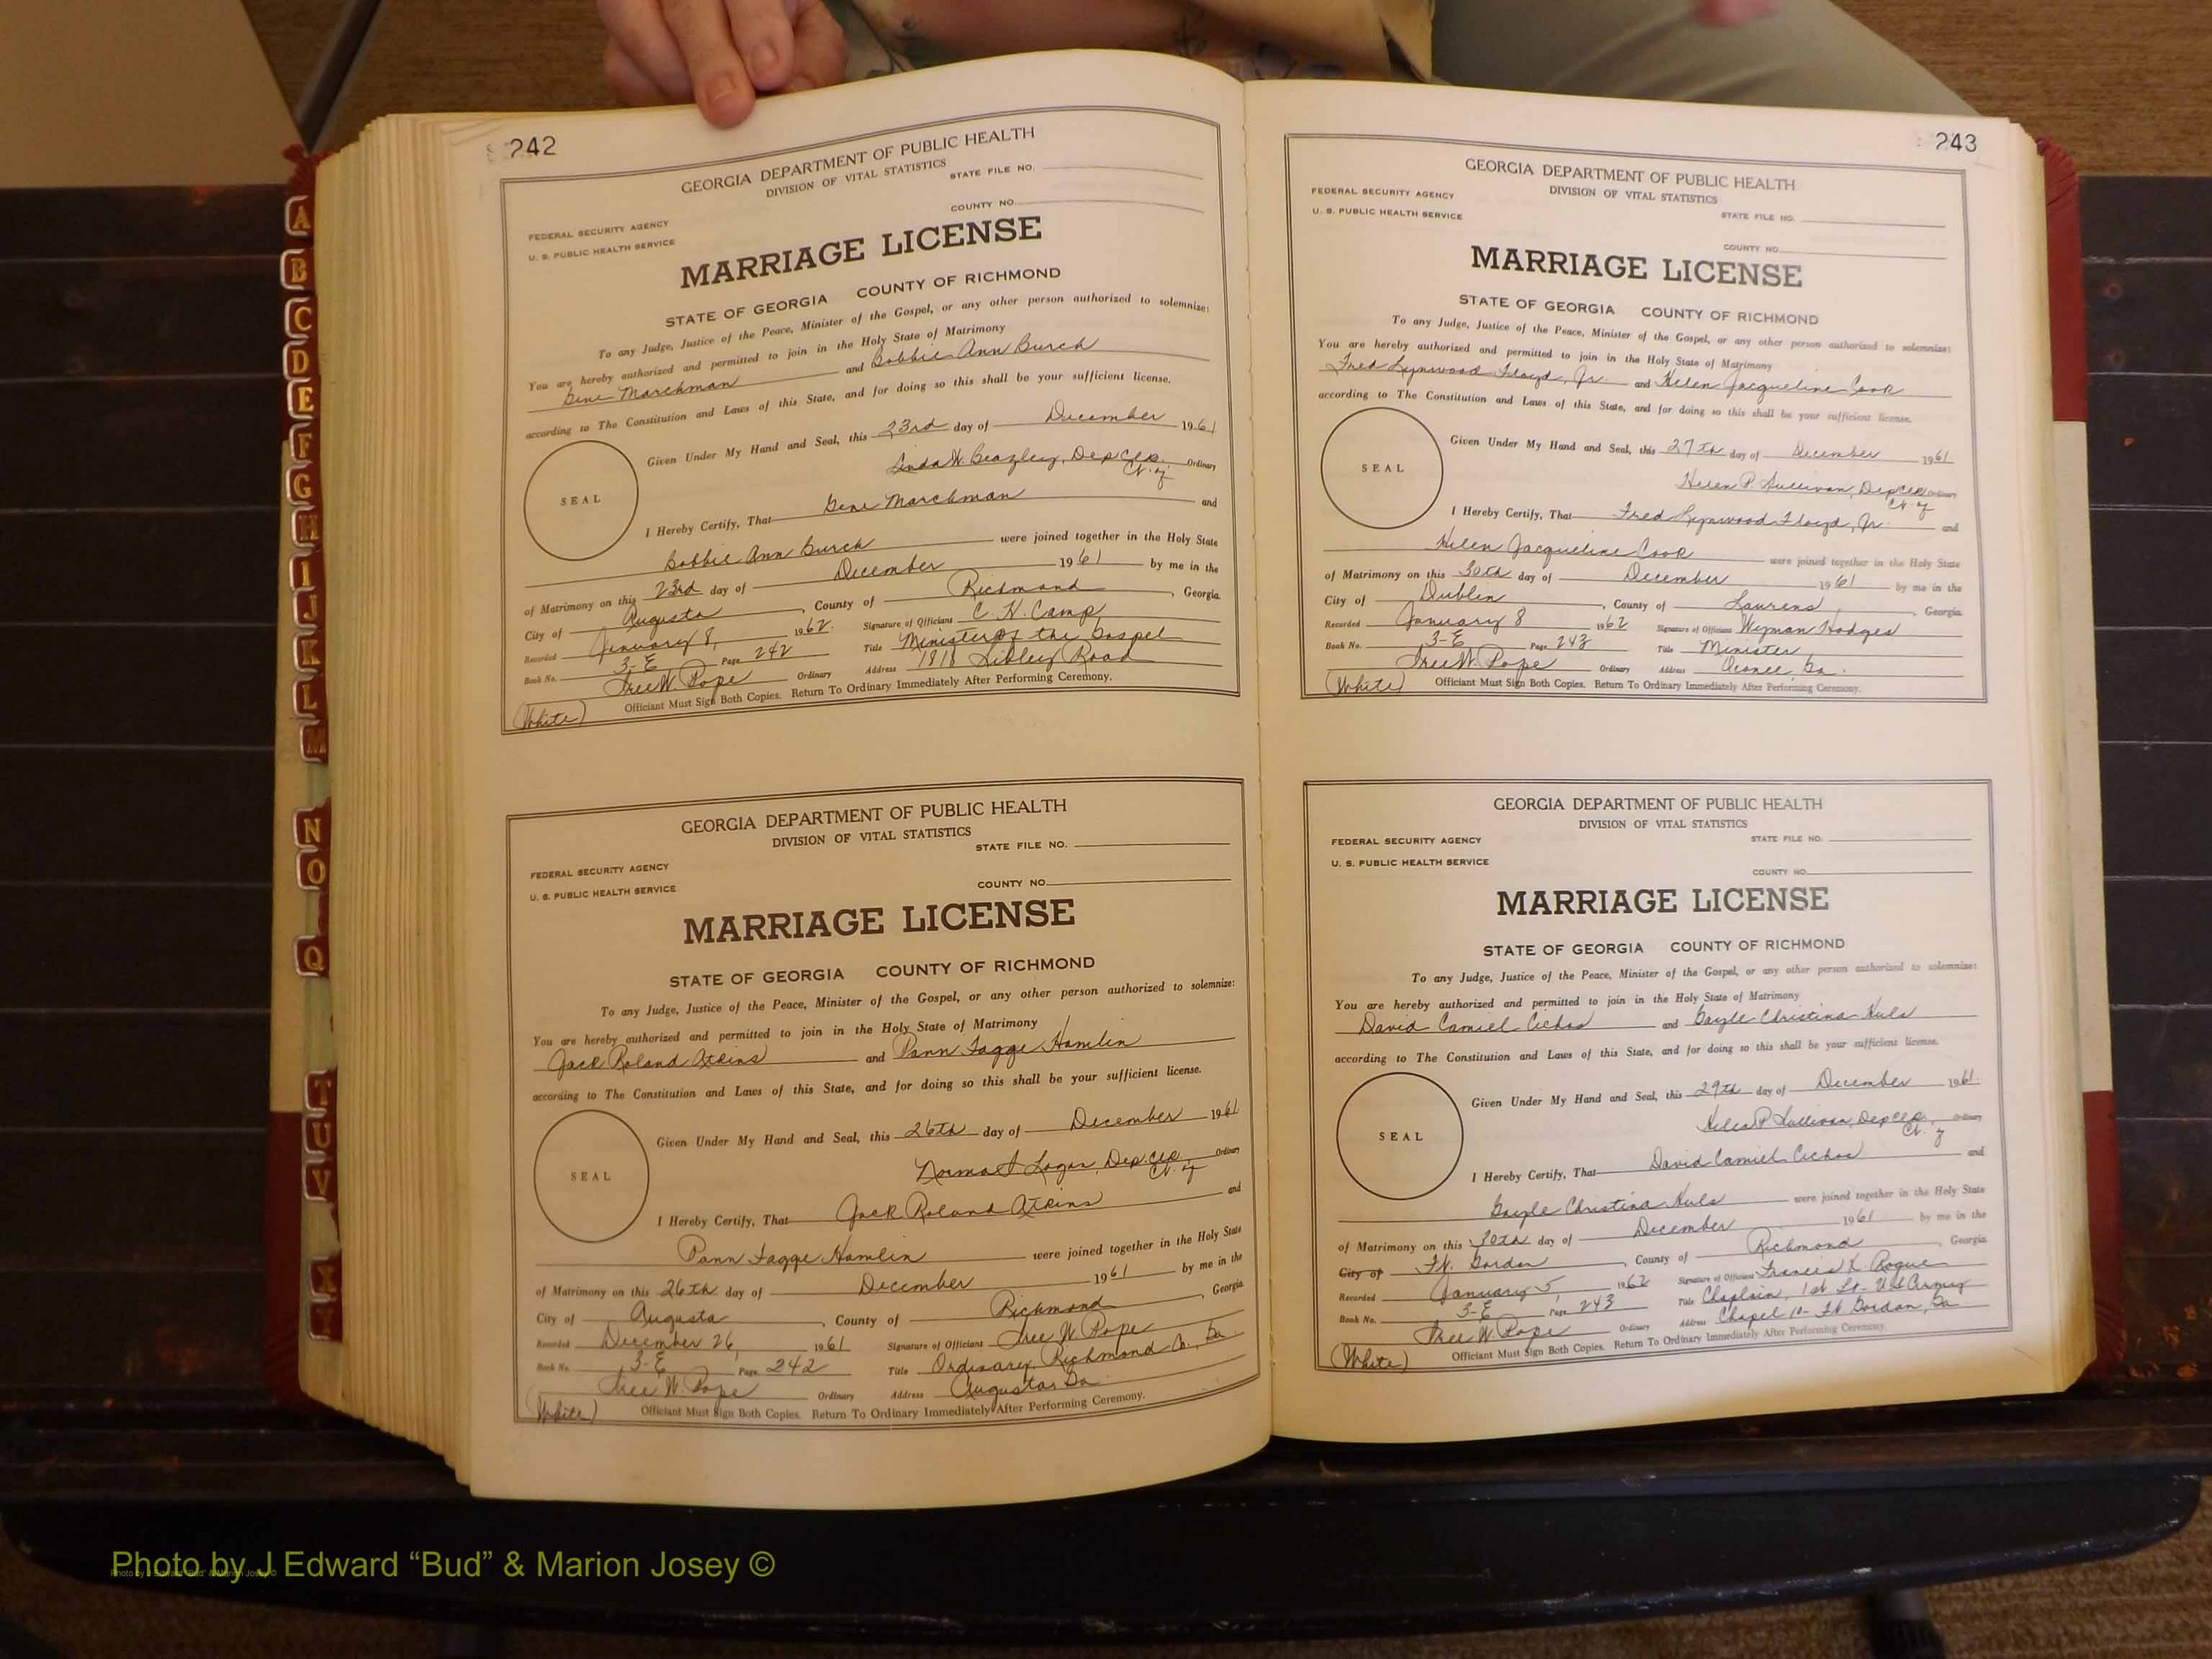 242
GEORGIA DEPARTMENT OF PUBLIC HEALTH
DIVISION OF VITAL STATISTICS
STATE FILE NO.
COUNTY NO.
FEDERAL SECURITY AGENCY
U. S. PUBLIC HEALTH SERVICE
MARRIAGE LICENSE
STATE OF GEORGIA COUNTY OF RICHMOND
To any Judge, Justice of the Peace, Minister of the Gospel, or any other person authorized to solemnize:
You are hereby authorized and permitted to join in the Holy State of Matrimony
Gene Marchman and Bobbie Ann Burch
according to The Constitution and Laws of this State, and for doing so this shall be your sufficient license.
Given Under My Hand and Seal, this 23rd day of December 1961
Linda W. Beazley, Dep Clk. Ordinary
Ct. of
SEAL
I Hereby Certify, That Gene Marchman and
Bobbie Ann Burch were joined together in the Holy State
of Matrimony on this 23rd day of December 1961 by me in the
City of Augusta, County of Richmond, Georgia.
Recorded January 8, 1962. Signature of Officiant C. H. Camp
Book No. 3-E Page 242 Title Minister of the Gospel
Tree W. Pope Ordinary Address 1818 Sibley Road
(White) Officiant Must Sign Both Copies. Return To Ordinary Immediately After Performing Ceremony.
GEORGIA DEPARTMENT OF PUBLIC HEALTH
DIVISION OF VITAL STATISTICS
STATE FILE NO.
FEDERAL SECURITY AGENCY
U. S. PUBLIC HEALTH SERVICE
COUNTY NO.
MARRIAGE LICENSE
STATE OF GEORGIA COUNTY OF RICHMOND
To any Judge, Justice of the Peace, Minister of the Gospel, or any other person authorized to solemnize:
You are hereby authorized and permitted to join in the Holy State of Matrimony
Jack Roland Atkins and Pann Hamlin
according to The Constitution and Laws of this State, and for doing so this shall be your sufficient license.
Given Under My Hand and Seal, this 26th day of December 1961
Logan, Dep. Clk. Ordinary
Ct. of
SEAL
I Hereby Certify, That Jack Roland Atkins and
Pann Hamlin were joined together in the Holy State
of Matrimony on this 26th day of December 1961 by me in the
City of Augusta, County of Richmond, Georgia
Recorded December 26, 1961 Signature of Officiant Tree W Pope
Book No. 3-E Page 242 Title Ordinary, Richmond Co, Ga
Tree W. Pope Ordinary Address Augusta, Ga
(White) Officiant Must Sign Both Copies. Return To Ordinary Immediately After Performing Ceremony.
243
GEORGIA DEPARTMENT OF PUBLIC HEALTH
FEDERAL SECURITY AGENCY
DIVISION OF VITAL STATISTICS
U. S. PUBLIC HEALTH SERVICE
STATE FILE NO.
COUNTY NO.
MARRIAGE LICENSE
STATE OF GEORGIA COUNTY OF RICHMOND
To any Judge, Justice of the Peace, Minister of the Gospel, or any other person authorized to solemnize:
You are hereby authorized and permitted to join in the Holy State of Matrimony
Fred Lynwood Floyd, Jr. and Helen Jacqueline Cook
according to The Constitution and Laws of this State, and for doing so this shall be your sufficient license.
Given Under My Hand and Seal, this 27th day of December 1961.
Helen P. Sullivan, Dep Clk Ordinary
Ct. of
SEAL
I Hereby Certify, That Fred Lynwood Floyd, Jr. and
Helen Jacqueline Cook were joined together in the Holy State
of Matrimony on this 30th day of December 1961 by me in the
City of Dublin, County of Laurens, Georgia
Recorded January 8 1962 Signature of Officiant Wyman Hodges
Book No. 3-E Page 243 Title Minister
Tree W. Pope Ordinary Address Oconee, Ga.
(White) Officiant Must Sign Both Copies. Return To Ordinary Immediately After Performing Ceremony.
GEORGIA DEPARTMENT OF PUBLIC HEALTH
DIVISION OF VITAL STATISTICS
FEDERAL SECURITY AGENCY
STATE FILE NO.
U. S. PUBLIC HEALTH SERVICE
COUNTY NO.
MARRIAGE LICENSE
STATE OF GEORGIA COUNTY OF RICHMOND
To any Judge, Justice of the Peace, Minister of the Gospel, or any other person authorized to solemnize:
You are hereby authorized and permitted to join in the Holy State of Matrimony
David Camiel Cichos and Gayle Christina Huls
according to The Constitution and Laws of this State, and for doing so this shall be your sufficient license.
Given Under My Hand and Seal, this 29th day of December 1961.
Helen P Sullivan, Dep Clk. Ordinary
Ct. of
SEAL
I Hereby Certify, That David Camiel Cichos and
Gayle Christina Huls were joined together in the Holy State
of Matrimony on this 30th day of December 1961 by me in the
City of Ft. Gordon, County of Richmond Georgia
Recorded January 5, 1962 Signature of Officiant Francis L. Rogue
Book No. 3-E Page 243 Title Chaplain, 1st Lt. US Army
Tree W Pope Ordinary Address Chapel 10- Ft Gordon, Ga
(White) Officiant Must Sign Both Copies. Return To Ordinary Immediately After Performing Ceremony.
A
B
C
D
E
F
G
H
I
J
K
L
M
N
O
Q
T
U
V
X
Y
Photo by J Edward “Bud” & Marion Josey ©
Photo by J Edward “Bud” & Marion Josey ©